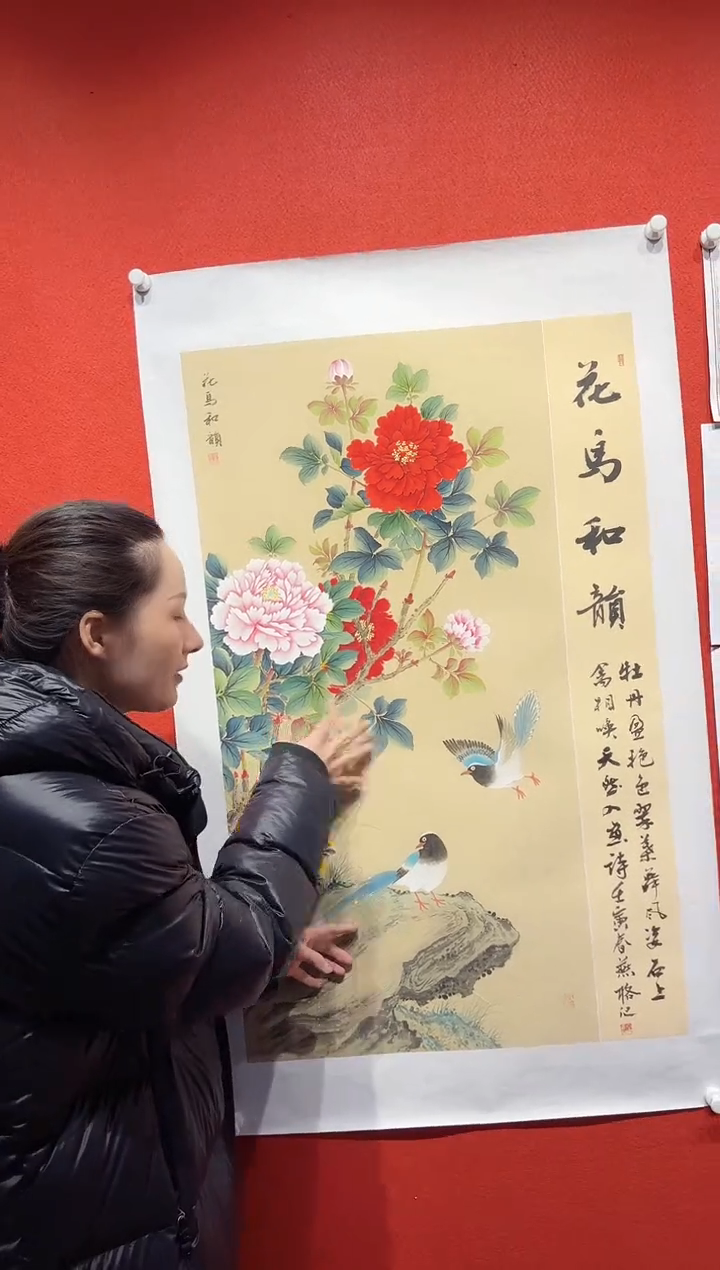 花鳥和韻
牡丹盈艳色翠葉舞风姿石上
禽相唤天然入画诗壬寅春燕记
花鳥和韻